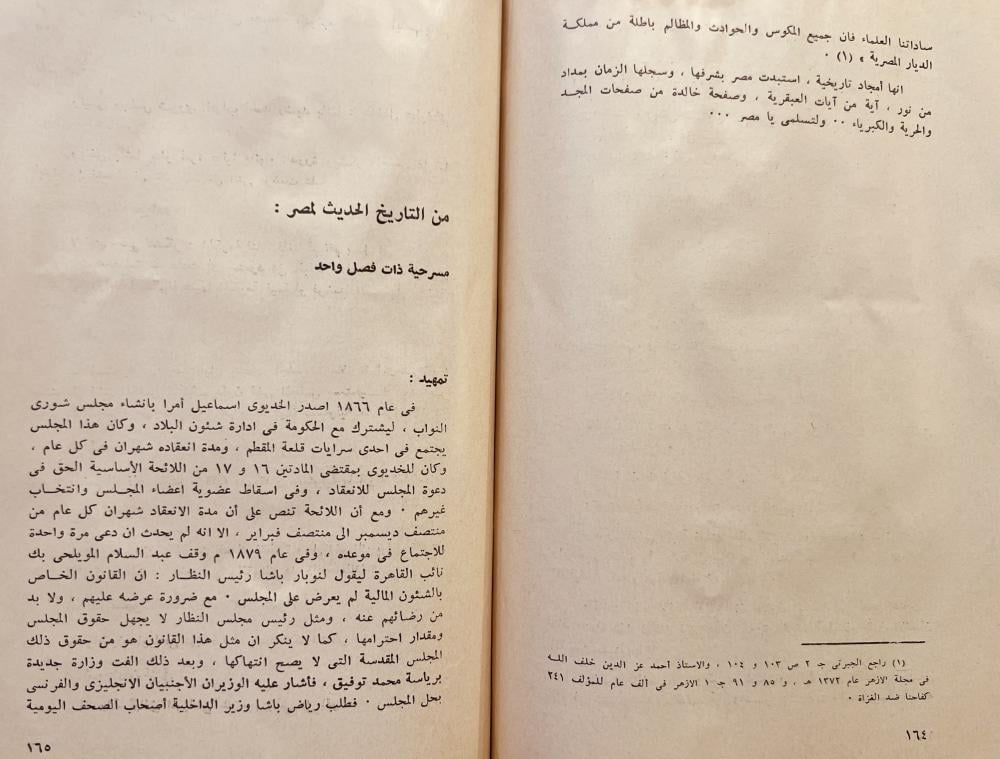 ساداتنا العلماء فان جميع المكوس والحوادث والمظالم باطلة من مملكة
الديار المصرية » (١) ·
انها أمجاد تاريخية ، استبدت مصر بشرفها ، وسجلها الزمان بمداد
من نور ، آية من آيات العبقرية ، وصفحة خالدة من صفحات المجد
والحرية والكبرياء ·· ولتسلمى يا مصر ···
(١) راجع الجبرتي جـ ٢ ص ١٠٣ و ١٠٤ ، والاستاذ أحمد عز الدين خلف الله
فى مجلة الازهر عام ١٣٧٢ هـ ، و ٨٥ و ٩١ جـ ١ الازهر فى ألف عام للمؤلف ٢٤١
كفاحنا ضد الغزاة ·
١٦٤
من التاريخ الحديث لمصر :
مسرحية ذات فصل واحد
تمهيد :
فى عام ١٨٦٦ اصدر الخديوى اسماعيل أمرا بانشاء مجلس شورى
النواب ، ليشترك مع الحكومة فى ادارة شئون البلاد ، وكان هذا المجلس
يجتمع فى احدى سرايات قلعة المقطم ، ومدة انعقاده شهران فى كل عام ،
وكان للخديوى بمقتضى المادتين ١٦ و ١٧ من اللائحة الأساسية الحق فى
دعوة المجلس للانعقاد ، وفى اسقاط عضوية اعضاء المجلس وانتخاب
غيرهم · ومع أن اللائحة تنص على أن مدة الانعقاد شهران كل عام من
منتصف ديسمبر الى منتصف فبراير ، الا انه لم يحدث ان دعى مرة واحدة
للاجتماع فى موعده ، وفى عام ١٨٧٩ م وقف عبد السلام المويلحى بك
نائب القاهرة ليقول لنوبار باشا رئيس النظار : ان القانون الخاص
بالشئون المالية لم يعرض على المجلس · مع ضرورة عرضه عليهم ، ولا بد
من رضائهم عنه ، ومثل رئيس مجلس النظار لا يجهل حقوق المجلس
ومقدار احترامها ، كما لا ينكر ان مثل هذا القانون هو من حقوق ذلك
المجلس المقدسة التى لا يصح انتهاكها ، وبعد ذلك الفت وزارة جديدة
برياسة محمد توفيق ، فأشار عليه الوزيران الأجنبيان الانجليزى والفرنسى
بحل المجلس · فطلب رياض باشا وزير الداخلية أصحاب الصحف اليومية
١٦٥